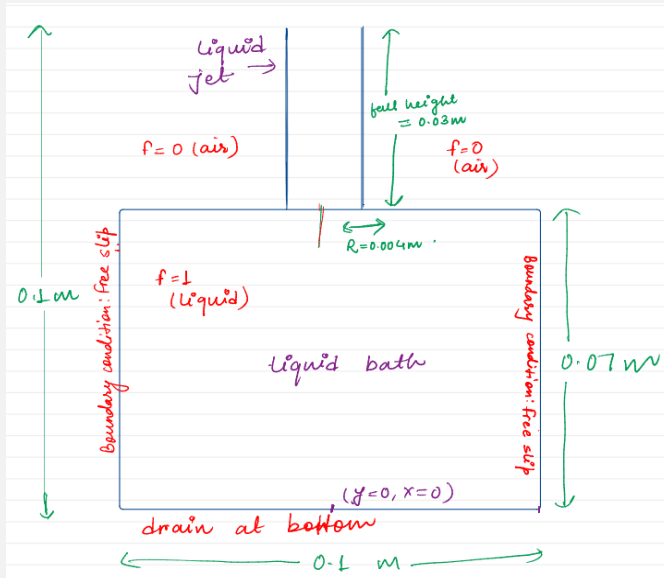 liquid
jet
fall height
= 0.03m
f=0 (air)
f=0
(air)
R=0.004m.
Boundary condition: free slip
f=1
(liquid)
0.1m
liquid bath
Boundary condition: free slip
0.07m
(y=0, x=0)
drain at bottom
0.1 m